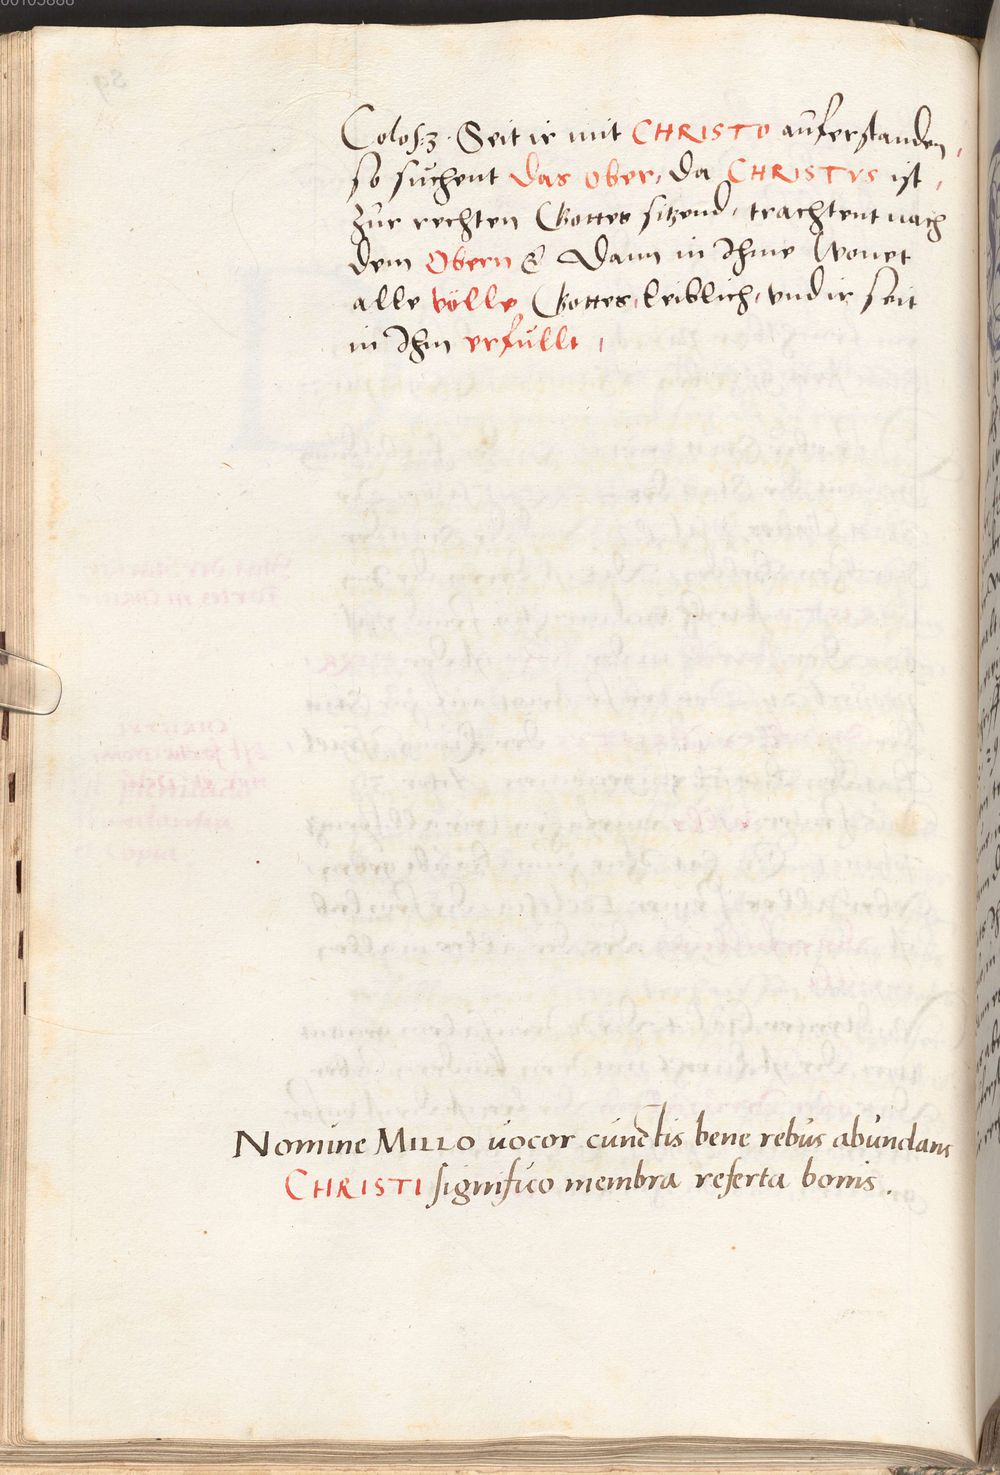 Colos: 3 · Seit ir mit CHRISTO auferstanden,
so suchent das Ober, da CHRISTVS ist,
zur rechten Gottes sitzend, trachtent nach
dem Obern & Dann in Ihme Wonet
alle völle Gottes, leiblich, vnd ir seit
in Ihm erfüllt,
NOMINE MILLO uocor cunctis bene rebus abundans
CHRISTI significo membra referta bonis.